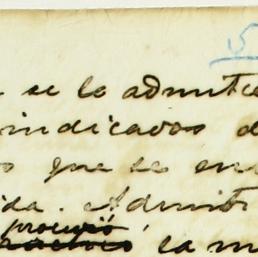 5
se le admite
indicados d
que se en
ida. Admit
procuró
la m